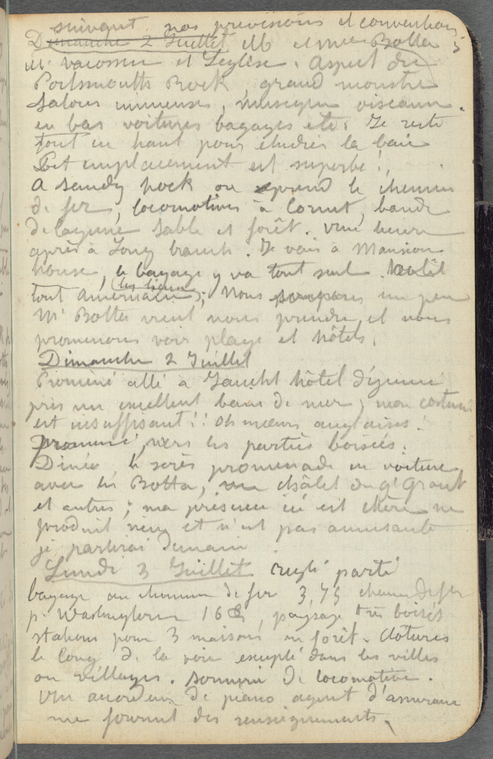 suivant nos prévisions et conventions
Dimanche 2 Juillet Mr et Mme Botta
et
Portsmouth Rock, grand monstre
salons immenses, musique oiseaux.
en bas voitures bagages etc. Je reste
tout en haut pour étudier la baie
Cet emplacement est superbe!,
A Sandy hock on prend le chemin
de fer, locomotives à Cornet, bande
de lagune sable et forêt. une heure
après à Long branch. Je vais à Mansion
house, le bagage y va tout seul. hotel
tout américain; nous soupons un peu
Mr Botta vient nous prendre et nous
promenons voir plage et hôtels.
Dimanche 2 Juillet
Promené allé à hôtel déjeuné
pris un excellent bain de mer; mon costume
est insuffisant!! oh mœurs anglaises!
promené, vers les parties boisées.
Dinée, le soir promenade en voiture
avec les Botta, vu châlet du gl Grant
et autres; ma présence ici est chère ne
produit rien et n'est pas amusante
je partirai demain
Lundi 3 Juillet réglé parti
bagage au chemin de fer 3,75 chemin de fer
pr Washington 16 , paysage très boisés
stations pour 3 maisons en forêt. clotures
le long de la voie excepté dans les villes
ou villages. sonnerie de locomotive.
Un accordeur de piano agent d'assurance
me fournit des renseignements,